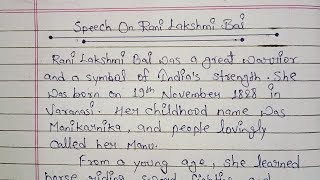 Speech On Rani Lakshmi Bai
Rani Lakshmi Bai was a great warrior
and a symbol of India's strength. She
was born on 19th November 1828 in
Varanasi. Her childhood name was
Manikarnika, and people lovingly
called her Manu.
From a young age, she learned
horse riding, sword fighting and